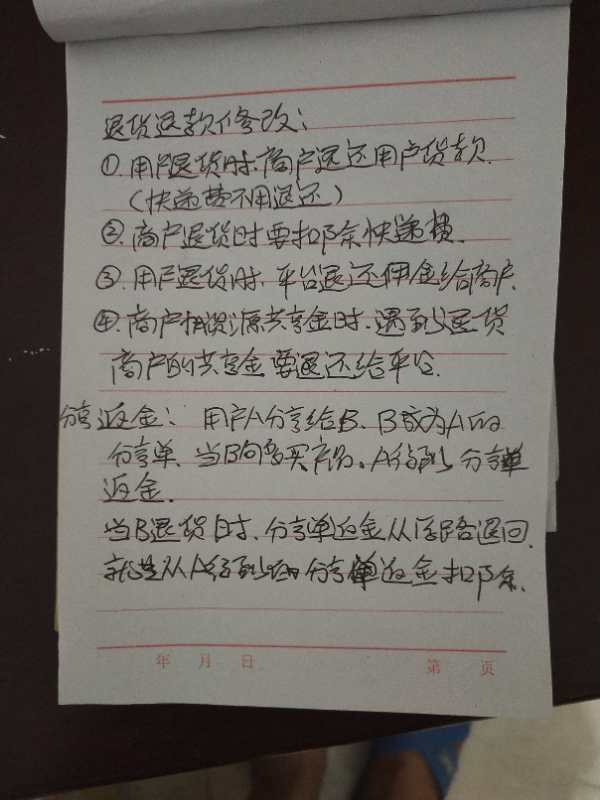 退货退款修改：
①.用户退货时.商户退还用户货款.
（快递费不用退还）
②.商户退货时要扣除快递费.
③.用户退货时.平台退还佣金给商户.
④.商户拥资源共享金时.遇到退货
商户的共享金要退还给平台.
分享返金：用户A分享给B、B成为A的
分享单.当B购买产品。A得到分享单
返金.
当B退货时、分享单返金从原路退回.
就是从A得到的分享单返金扣除.
年 月 日 第 页